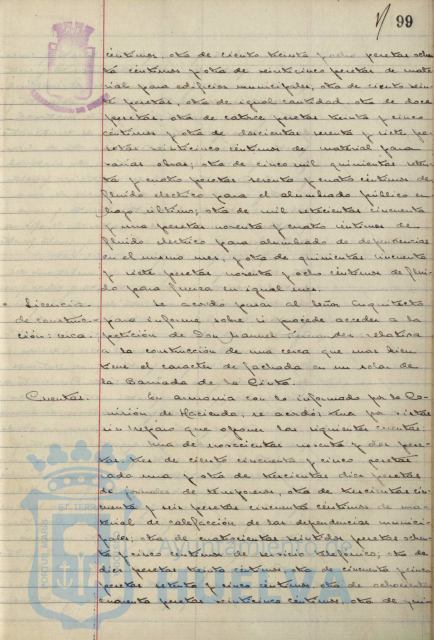 99
céntimos, otra de ciento treinta y ocho pesetas ochen
ta céntimos y otra de veinticinco pesetas de mate
rial para edificios municipales, otra de ciento vein
te pesetas, otra de igual cantidad, otra de doce
pesetas, otra de catorce pesetas treinta y cinco
céntimos y otra de doscientas sesenta y siete pe-
setas veinticinco céntimos de material para
varias obras; otra de cinco mil quinientas seten
ta y cuatro pesetas sesenta y cuatro céntimos de
fluido electrico para el alumbrado público en
Mayo último; otra de mil setecientas cincuenta
y una pesetas noventa y cuatro céntimos de
fluido electrico para alumbrado de dependencias
en el mismo mes, y otra de quinientas cincuenta
y siete pesetas noventa y ocho céntimos de flui
do para fuerza en igual mes.
Licencia Se acordó pasar al Señor Arquitecto
de construc- para informe sobre si procede acceder a la
ción: cerca. petición de Don Manuel relativa
a la construcción de una cerca que mas bien
tiene el caracter de fachada en un solar de
la Barriada de la Cinta.
Cuentas. En armonia con lo informado por la Co
misión de Hacienda, se acordó
sin reparo que oponer las siguientes cuentas:
Una de novecientas noventa y dos pese
tas, tres de ciento cincuenta y cinco pesetas
cada una y otra de trescientas diez pesetas
de jornales de temporeros, otra de trescientas cin
cuenta y seis pesetas cincuenta céntimos de ma
terial de calefacción de las dependencias munici
pales; otra de cuatrocientas veintidos pesetas ochen
ta y cinco céntimos de servicio telefónico; otra de
diez pesetas treinta céntimos, otra de cincuenta y cinco
pesetas setenta y cinco céntimos, otra de ochocientas
cuarenta pesetas veinticinco céntimos, otra de quin
Ayuntamiento de
HUELVA
PORTUS MARIS
ET TERRAE